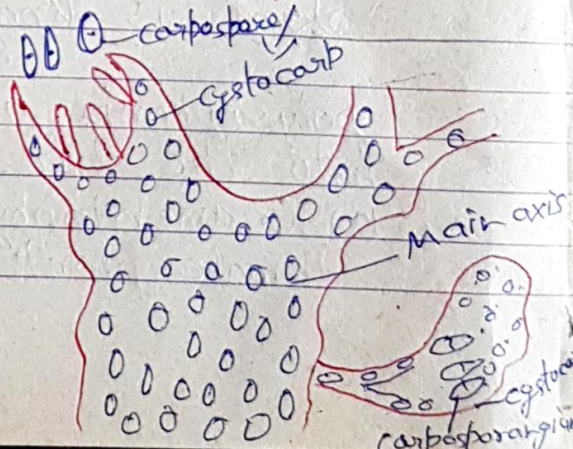 carpospore/
cystocarp
Main axis
cystoca
carposporangiu